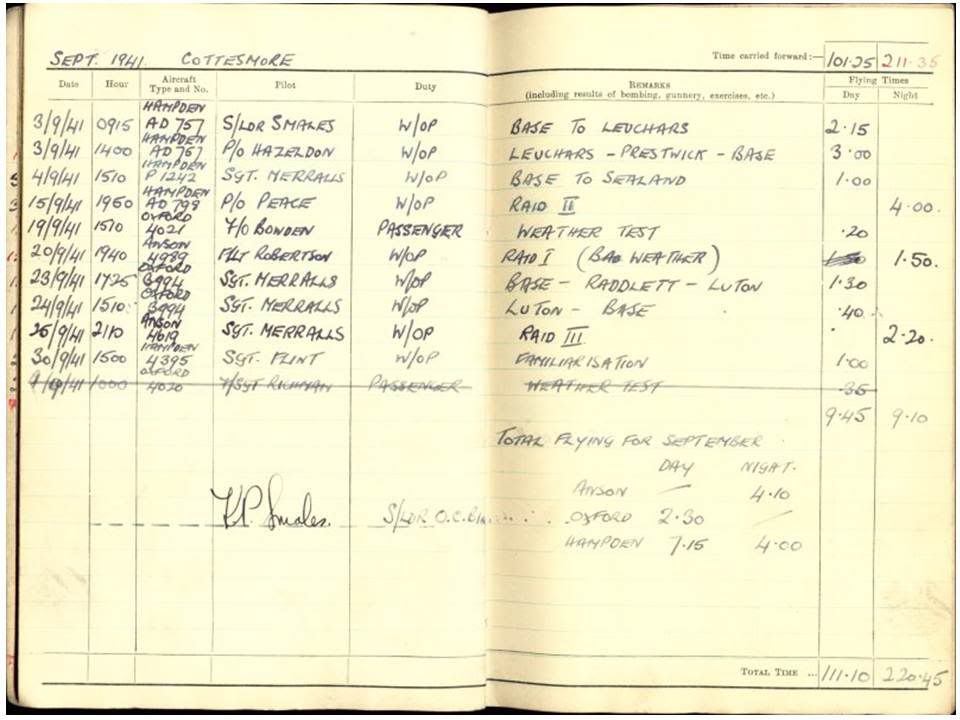 SEPT. 1941. COTTESMORE Time carried forward:— 101.25 211.35
Date Hour Aircraft Type and No. Pilot Duty REMARKS (including results of bombing, gunnery, exercises, etc.) Flying Times Day Night
3/9/41 0915 HAMPDEN AD 757 S/LDR SMALES W/OP BASE TO LEUCHARS 2.15
3/9/41 1400 HAMPDEN AD 757 P/O HAZELDON W/OP LEUCHARS – PRESTWICK – BASE 3.00
4/9/41 1510 HAMPDEN P 1242 SGT. MERRALLS W/OP BASE TO SEALAND 1.00
15/9/41 1950 HAMPDEN AD 799 P/O PEACE W/OP RAID II 4.00.
19/9/41 1510 OXFORD 4021 BOWDEN PASSENGER WEATHER TEST .20
20/9/41 1940 ANSON 4989 F/LT ROBERTSON W/OP RAID I (BAD WEATHER) 1.50.
23/9/41 1725 OXFORD 3994 SGT. MERRALLS W/OP BASE – RADDLETT – LUTON 1.30
24/9/41 1510 OXFORD 3994 SGT. MERRALLS W/OP LUTON – BASE .40
25/9/41 2110 ANSON 4619 SGT. MERRALLS W/OP RAID III 2.20.
30/9/41 1500 HAMPDEN 4395 SGT. FLINT W/OP FAMILIARISATION 1.00
1000 OXFORD 4020 F/SGT RICHMAN PASSENGER WEATHER TEST .35
9.45 9.10
TOTAL FLYING FOR SEPTEMBER
DAY NIGHT.
ANSON — 4.10
K.P. Smales. S/LDR O.C. OXFORD 2.30 —
HAMPDEN 7.15 4.00
TOTAL TIME ... 111.10 220.45